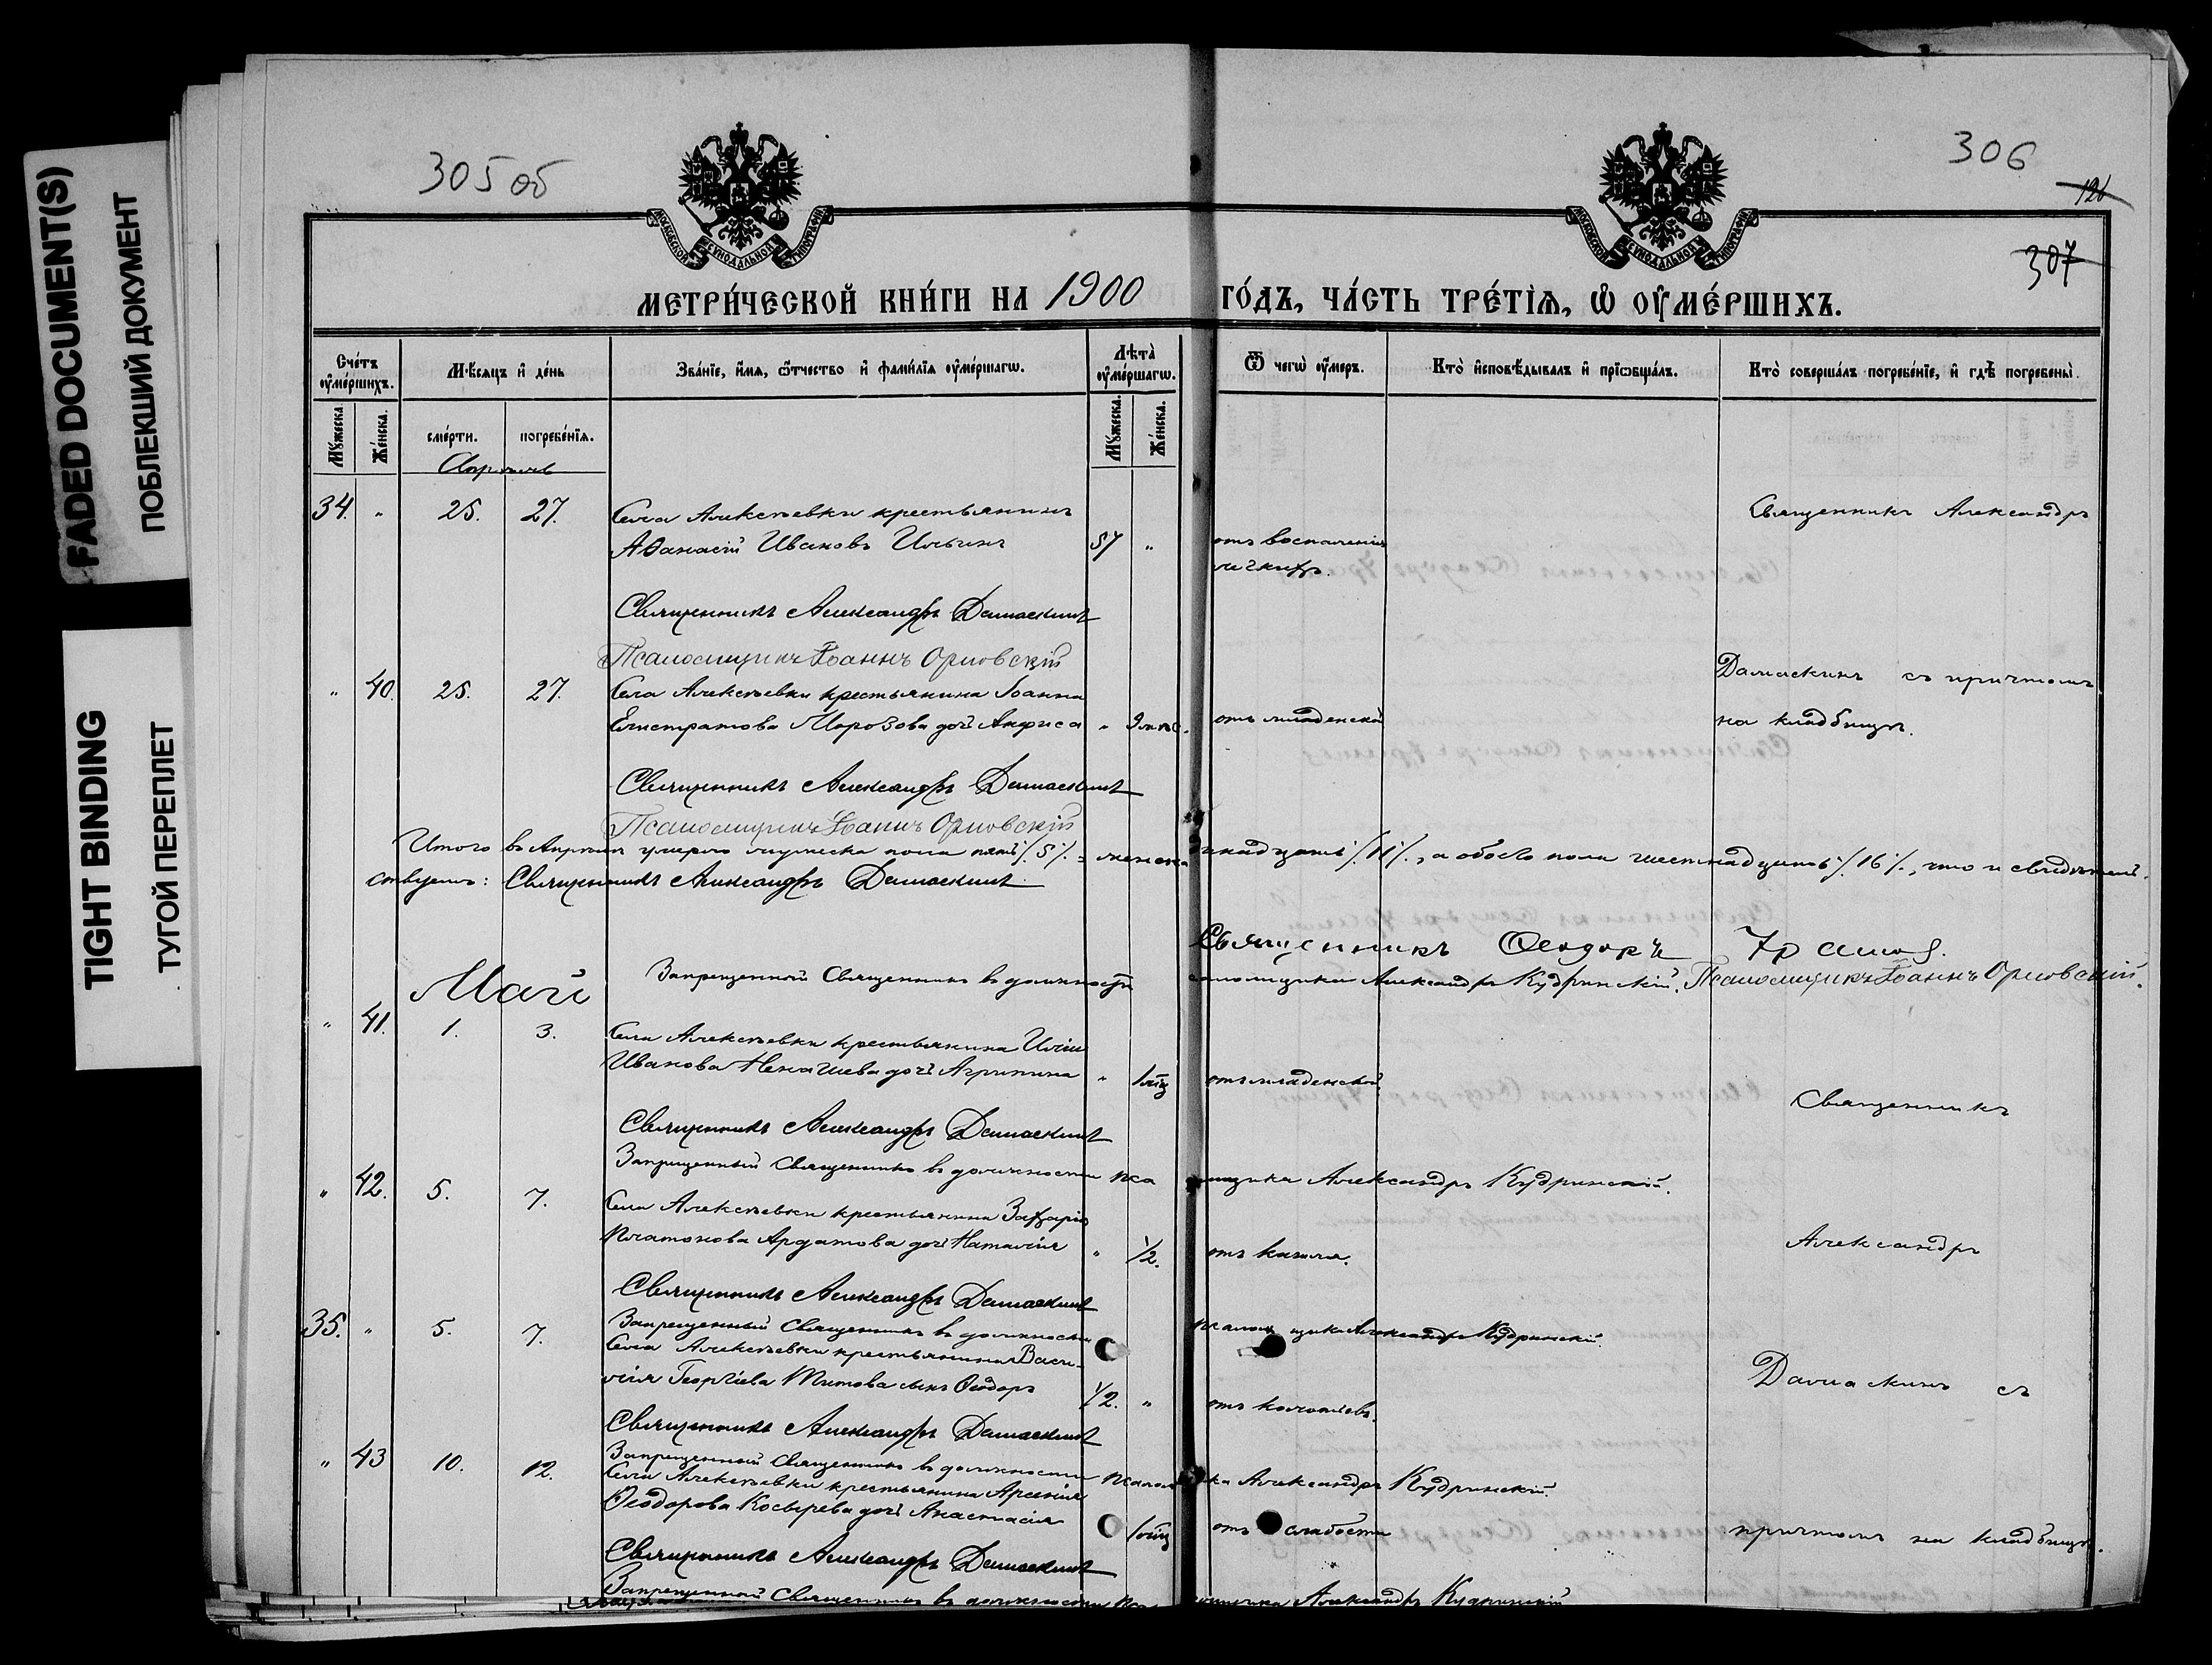 FADED DOCUMENT(S)
ПОБЛЕКШИЙ ДОКУМЕНТ
TIGHT BINDING
ТУГОЙ ПЕРЕПЛЕТ
305об
306
126
307
МОСКОВСКОЙ СУНОДАЛЬНОЙ ТИПОГРАФІИ
МОСКОВСКОЙ СУНОДАЛЬНОЙ ТИПОГРАФІИ
МЕТРИ́ЧЕСКОЙ КНИ́ГИ НА 1900 ГО́ДЪ, ЧА́СТЬ ТРЕ́ТІѦ, Ѡ҆ ОУ҆МЕ́РШИХЪ.
Сче́тъ оу҆ме́ршихъ.
Мѣ́сѧцъ и҆ де́нь
Зва́нїе, и҆́мѧ, ѻ҆́тчество и҆ фами́лїѧ оу҆ме́ршагѡ.
Лѣта̀ оу҆ме́ршагѡ.
Ѿ чегѡ̀ оу҆́меръ.
Кто̀ и҆сповѣ́дывалъ и҆ прїѡбща́лъ.
Кто̀ соверша́лъ погребе́нїе, и҆ гдѣ̀ погребены̀.
Мꙋ́жеска
Же́нска.
сме́рти.
погребе́нїѧ.
Мꙋ́жеска.
Же́нска.
Апрѣль
34. " 25. 27. Села Алексѣевки крестьянинъ
Аѳанасій Ивановъ Ильинъ 57 " отъ воспаленія
легкихъ.
Священникъ Александръ
Священникъ Александръ Дамаскинъ
Псаломщикъ Іоаннъ Орловскій
" 40. 25. 27. Села Алексѣевки крестьянина Іоанна
Елистратова Морозова дочь Анфиса " 9 отъ младенской
Дамаскинъ съ причтомъ
на кладбищѣ.
Священникъ Александръ Дамаскинъ
Псаломщикъ Іоаннъ Орловскій
Итого въ Апрѣлѣ умерло мужеска пола пять /.5/., женска надцать /.11/., а обоего пола шестнадцать /.16/., что и свидѣтель-
ствуемъ: Священникъ Александръ Дамаскинъ
Священникъ Ѳеодоръ
Запрещенный Священникъ въ должности псаломщика Александръ Кудринскій. Псаломщикъ Іоаннъ Орловскій.
Май
" 41. 1. 3. Села Алексѣевки крестьянина Иліи
Иванова дочь Агрипина " 1 мѣц отъ младенской
Священникъ
Священникъ Александръ Дамаскинъ
Запрещенный Священникъ въ должности псаломщика Александръ Кудринскій.
" 42. 5. 7. Села Алексѣевки крестьянина Захарія
Платонова Ардатова дочь Наталія " 1/2. отъ кашля.
Александръ
Священникъ Александръ Дамаскинъ
Запрещенный Священникъ въ должности псаломщика Александръ Кудринскій.
35. " 5. 7. Села Алексѣевки крестьянина Васи-
лія Георгіева Титова сынъ Ѳеодоръ 1/2. " отъ колотьевъ.
Дамаскинъ съ
Священникъ Александръ Дамаскинъ
Запрещенный Священникъ въ должности псаломщика Александръ Кудринскій.
" 43 10. 12. Села Алексѣевки крестьянина Арсенія
Ѳеодорова Косырева дочь Анастасія 1 мѣц отъ слабости
причтомъ на кладбищѣ.
Священникъ Александръ Дамаскинъ
Запрещенный Священникъ въ должности псаломщика Александръ Кудринскій